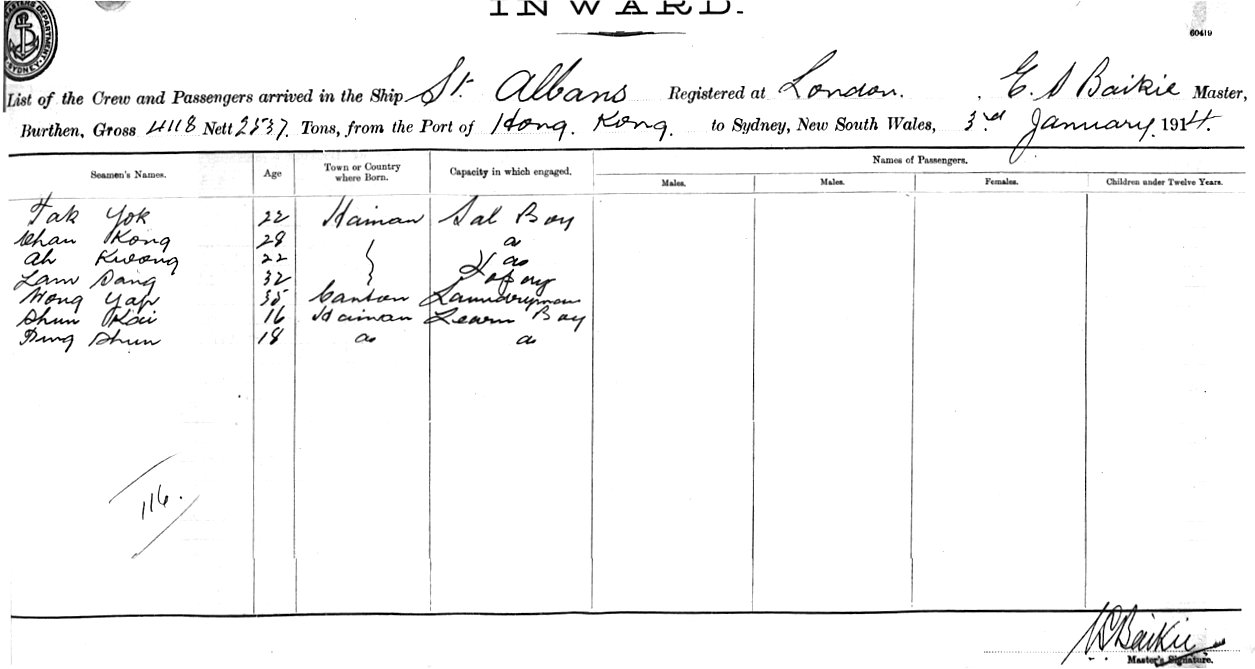 INWARD.
CUSTOMS DEPARTMENT SYDNEY
60419
List of the Crew and Passengers arrived in the Ship St. Albans Registered at London. E. Baikie Master,
Burthen, Gross 4118 Nett 2537. Tons, from the Port of Hong Kong. to Sydney, New South Wales, 3rd January. 1914.
Seamen's Names. Age Town or Country where Born. Capacity in which engaged. Names of Passengers.
Males. Males. Females. Children under Twelve Years.
Tak Yok 22 Hainan Sal Boy
Chan Kong 28
Ah Kwong 22
Lam Sang 32
Wong Yap 35 Canton Laundryman
Shun Kai 16 Hainan Learn Boy
Shun 18
116.
Baikie
Master's Signature.